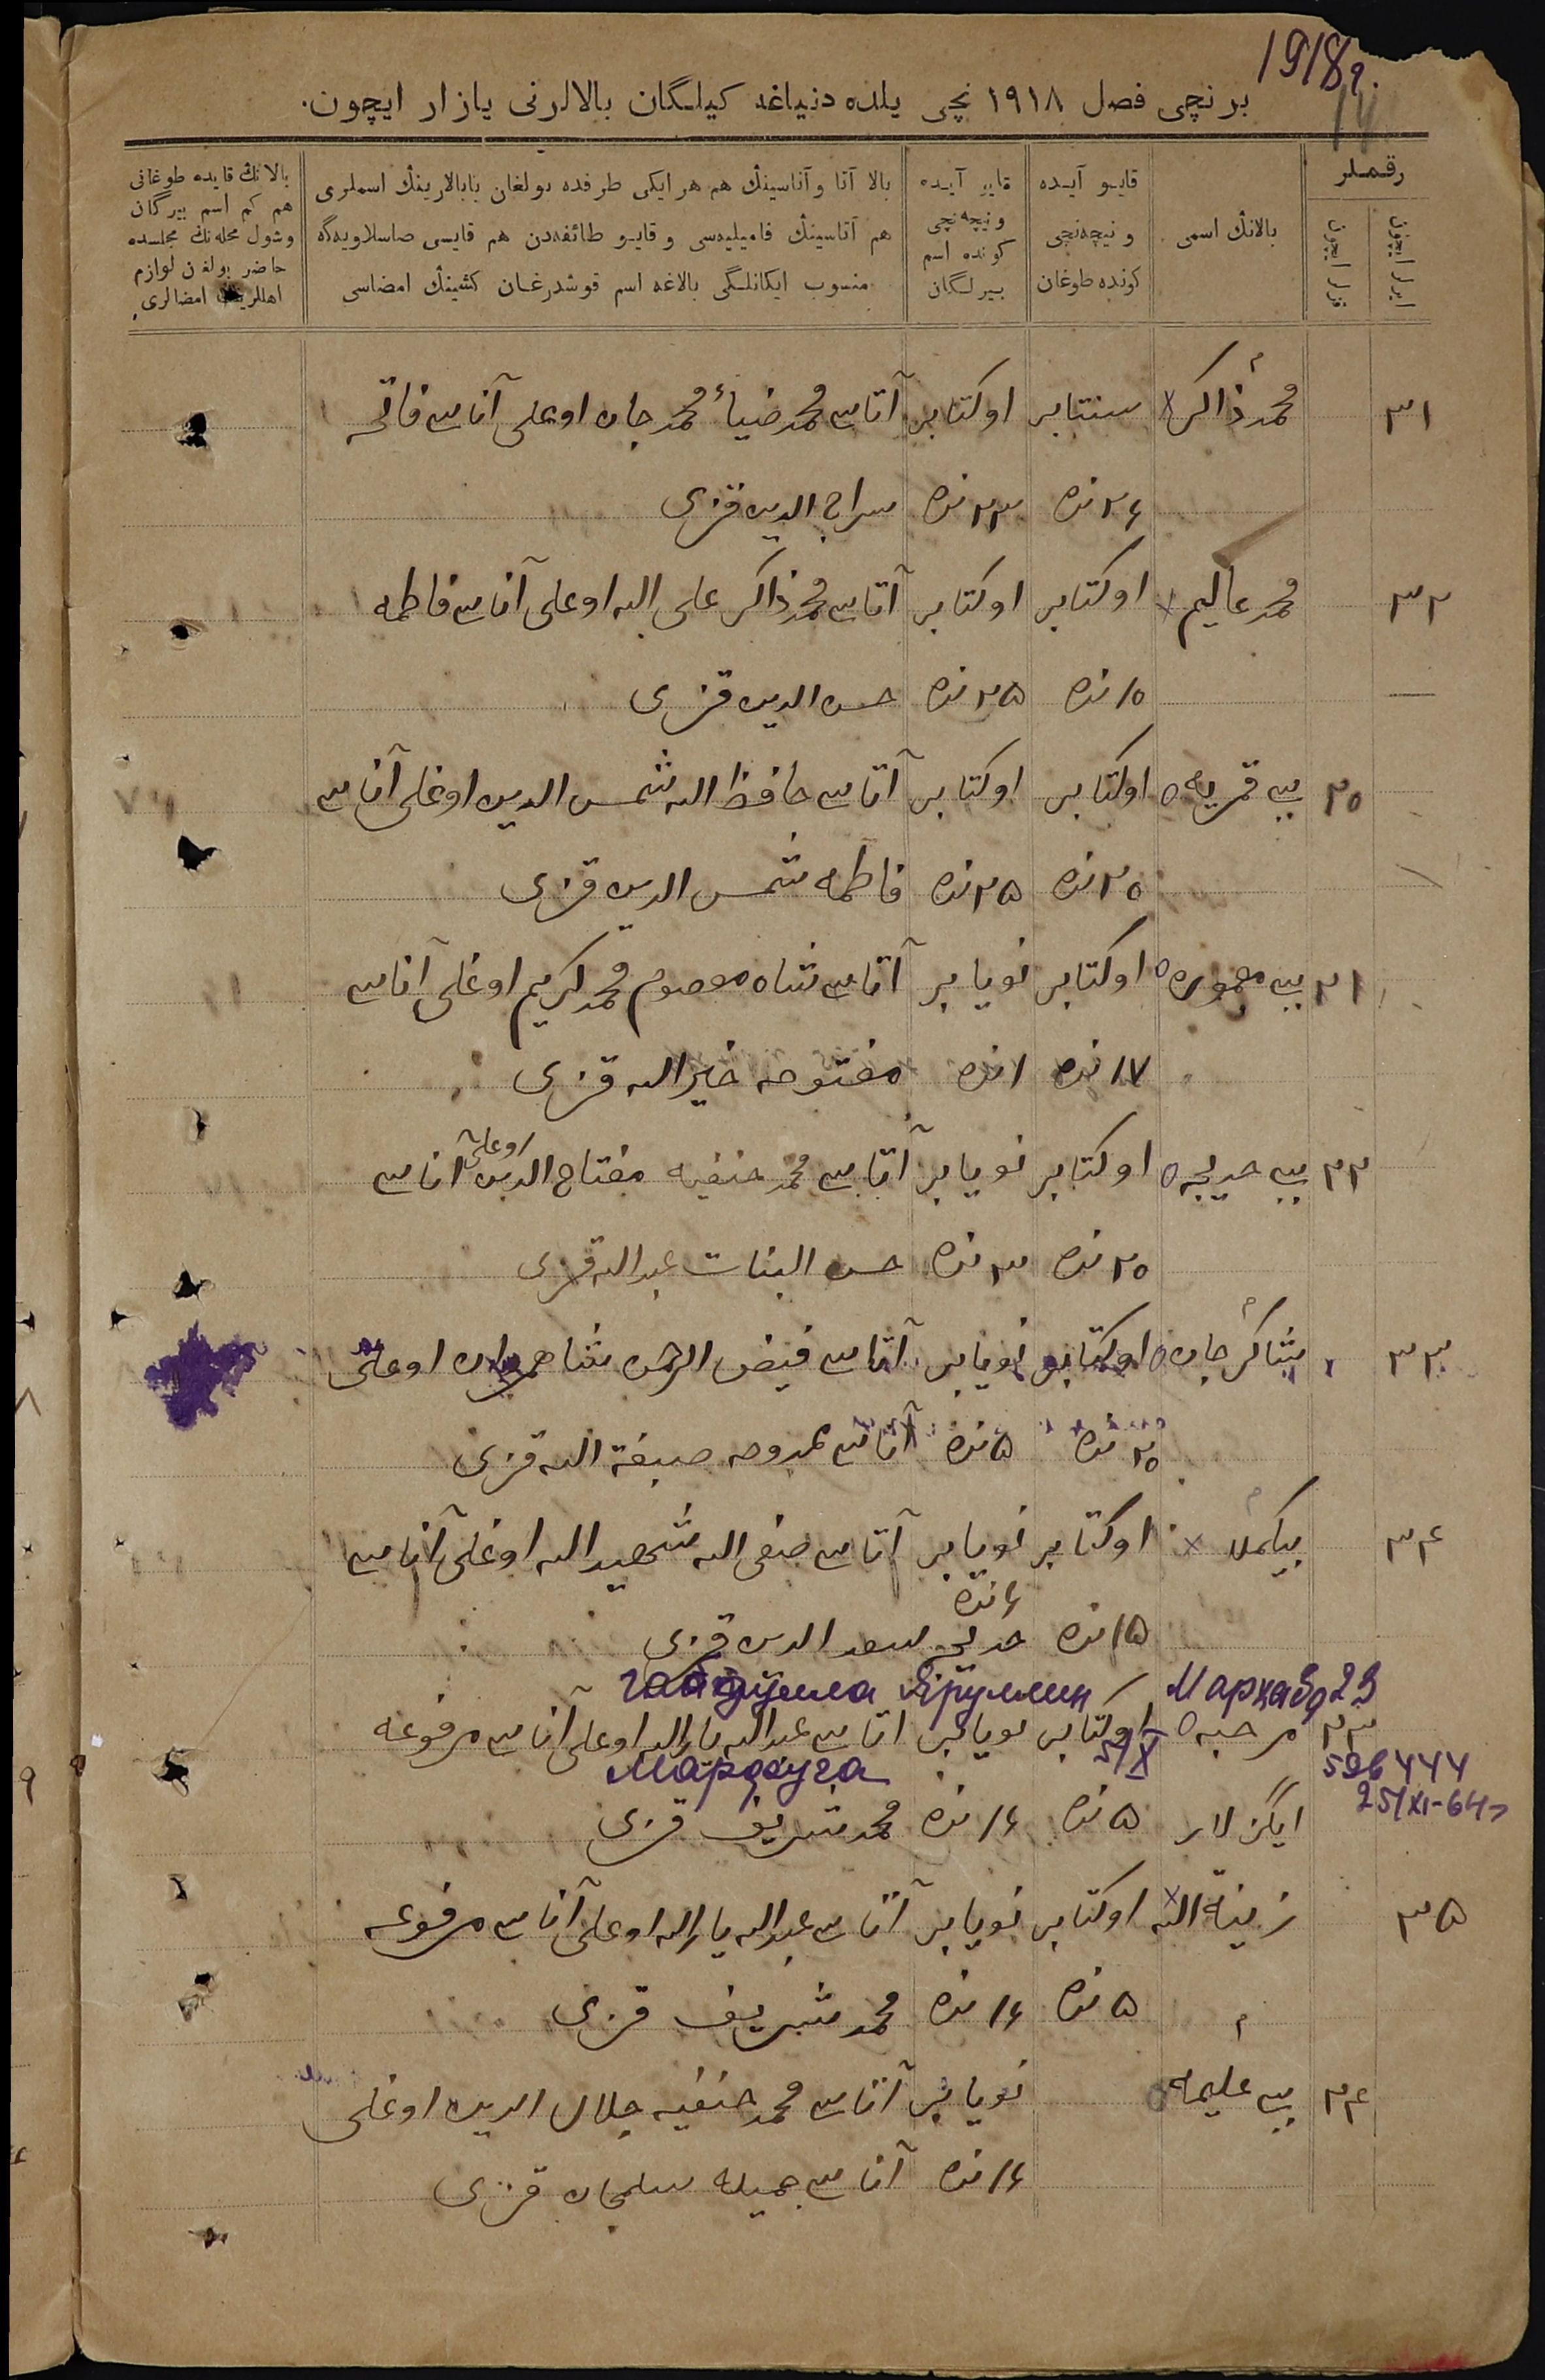 1918г.
برنچی فصل ۱۹۱۸ نچی یلده دنیاغه کیلگان بالالرنی یازار ایچون.
رقملر
ایرلر ایچون
قزلر ایچون
بالانڭ اسمی
قایو آیده
و نیچه‌نچی
کونده طوغان
قایو آیده
و نیچه‌نچی
کونده اسم
بیرلگان
بالا آتا و آناسینڭ هم هر ایکی طرفده بولغان بابالارینڭ اسملری
هم آتاسینڭ فامیلیه‌سی و قایو طائفه‌دن هم قایسی صاسلاویه‌گه
منسوب ایکانلگی بالاغه اسم قوشدرغان کشینڭ امضاسی
بالانڭ قایده طوغانی
هم کم اسم بیرگان
و شول محله‌نڭ مجلسده
حاضر بولغن لوازم
اهللرینڭ امضالری.
۳۱ محمد ذاکر سنتابر اوکتابر آتاسی محمد ضیاء محمد جان اوغلی آناسی فاتحه
۲۶ نده ۲۳ نده سراج الدین قزی
۳۲ محمد عالیم اوکتابر اوکتابر آتاسی محمد ذاکر علی الله اوغلی آناسی فاطمه
۱۰ نده ۲۵ نده حسن الدین قزی
۲۰ بی بی قمریه اوکتابر اوکتابر آتاسی حافظ الله شمس الدین اوغلی آناسی
۲۰ نده ۲۵ نده فاطمه شمس الدین قزی
۲۱ بی بی معموره اوکتابر نویابر آتاسی شاه معصوم محمد کریم اوغلی آناسی
۱۷ نده ۱ نده مفتوحه خیر الله قزی
۲۲ بی بی خدیجه اوکتابر نویابر آتاسی محمد حنفیه مفتاح الدین اوغلی آناسی
۲۰ نده ۳ نده حسن البنات عبد الله قزی
۳۳ شاکر جان اوکتابر نویابر آتاسی فیض الرحمن اوغلی
۲۰ نده ۵ نده آناسی ممدوحه صبغة الله قزی
۳۴ بیکملا اوکتابر نویابر آتاسی صفی الله شهید الله اوغلی آناسی
۶ نده
۱۵ نده خدیجه سعد الدین قزی
Габдулла Яруллин
۲۳ مرحبه اوکتابر نویابر آتاسی عبد الله یار الله اوغلی آناسی مرفوعه
5/X
Марфуга
596444
25/XI-64г
ایگزلار ۵ نده ۱۶ نده محمد شریف قزی
۳۵ زینة الله اوکتابر نویابر آتاسی عبد الله یار الله اوغلی آناسی مرفوعه
۵ نده ۱۶ نده محمد شریف قزی
۲۴ بی بی علیمه نویابر آتاسی محمد حنفیه جلال الدین اوغلی
۱۶ نده آناسی جمیله سلمجان قزی